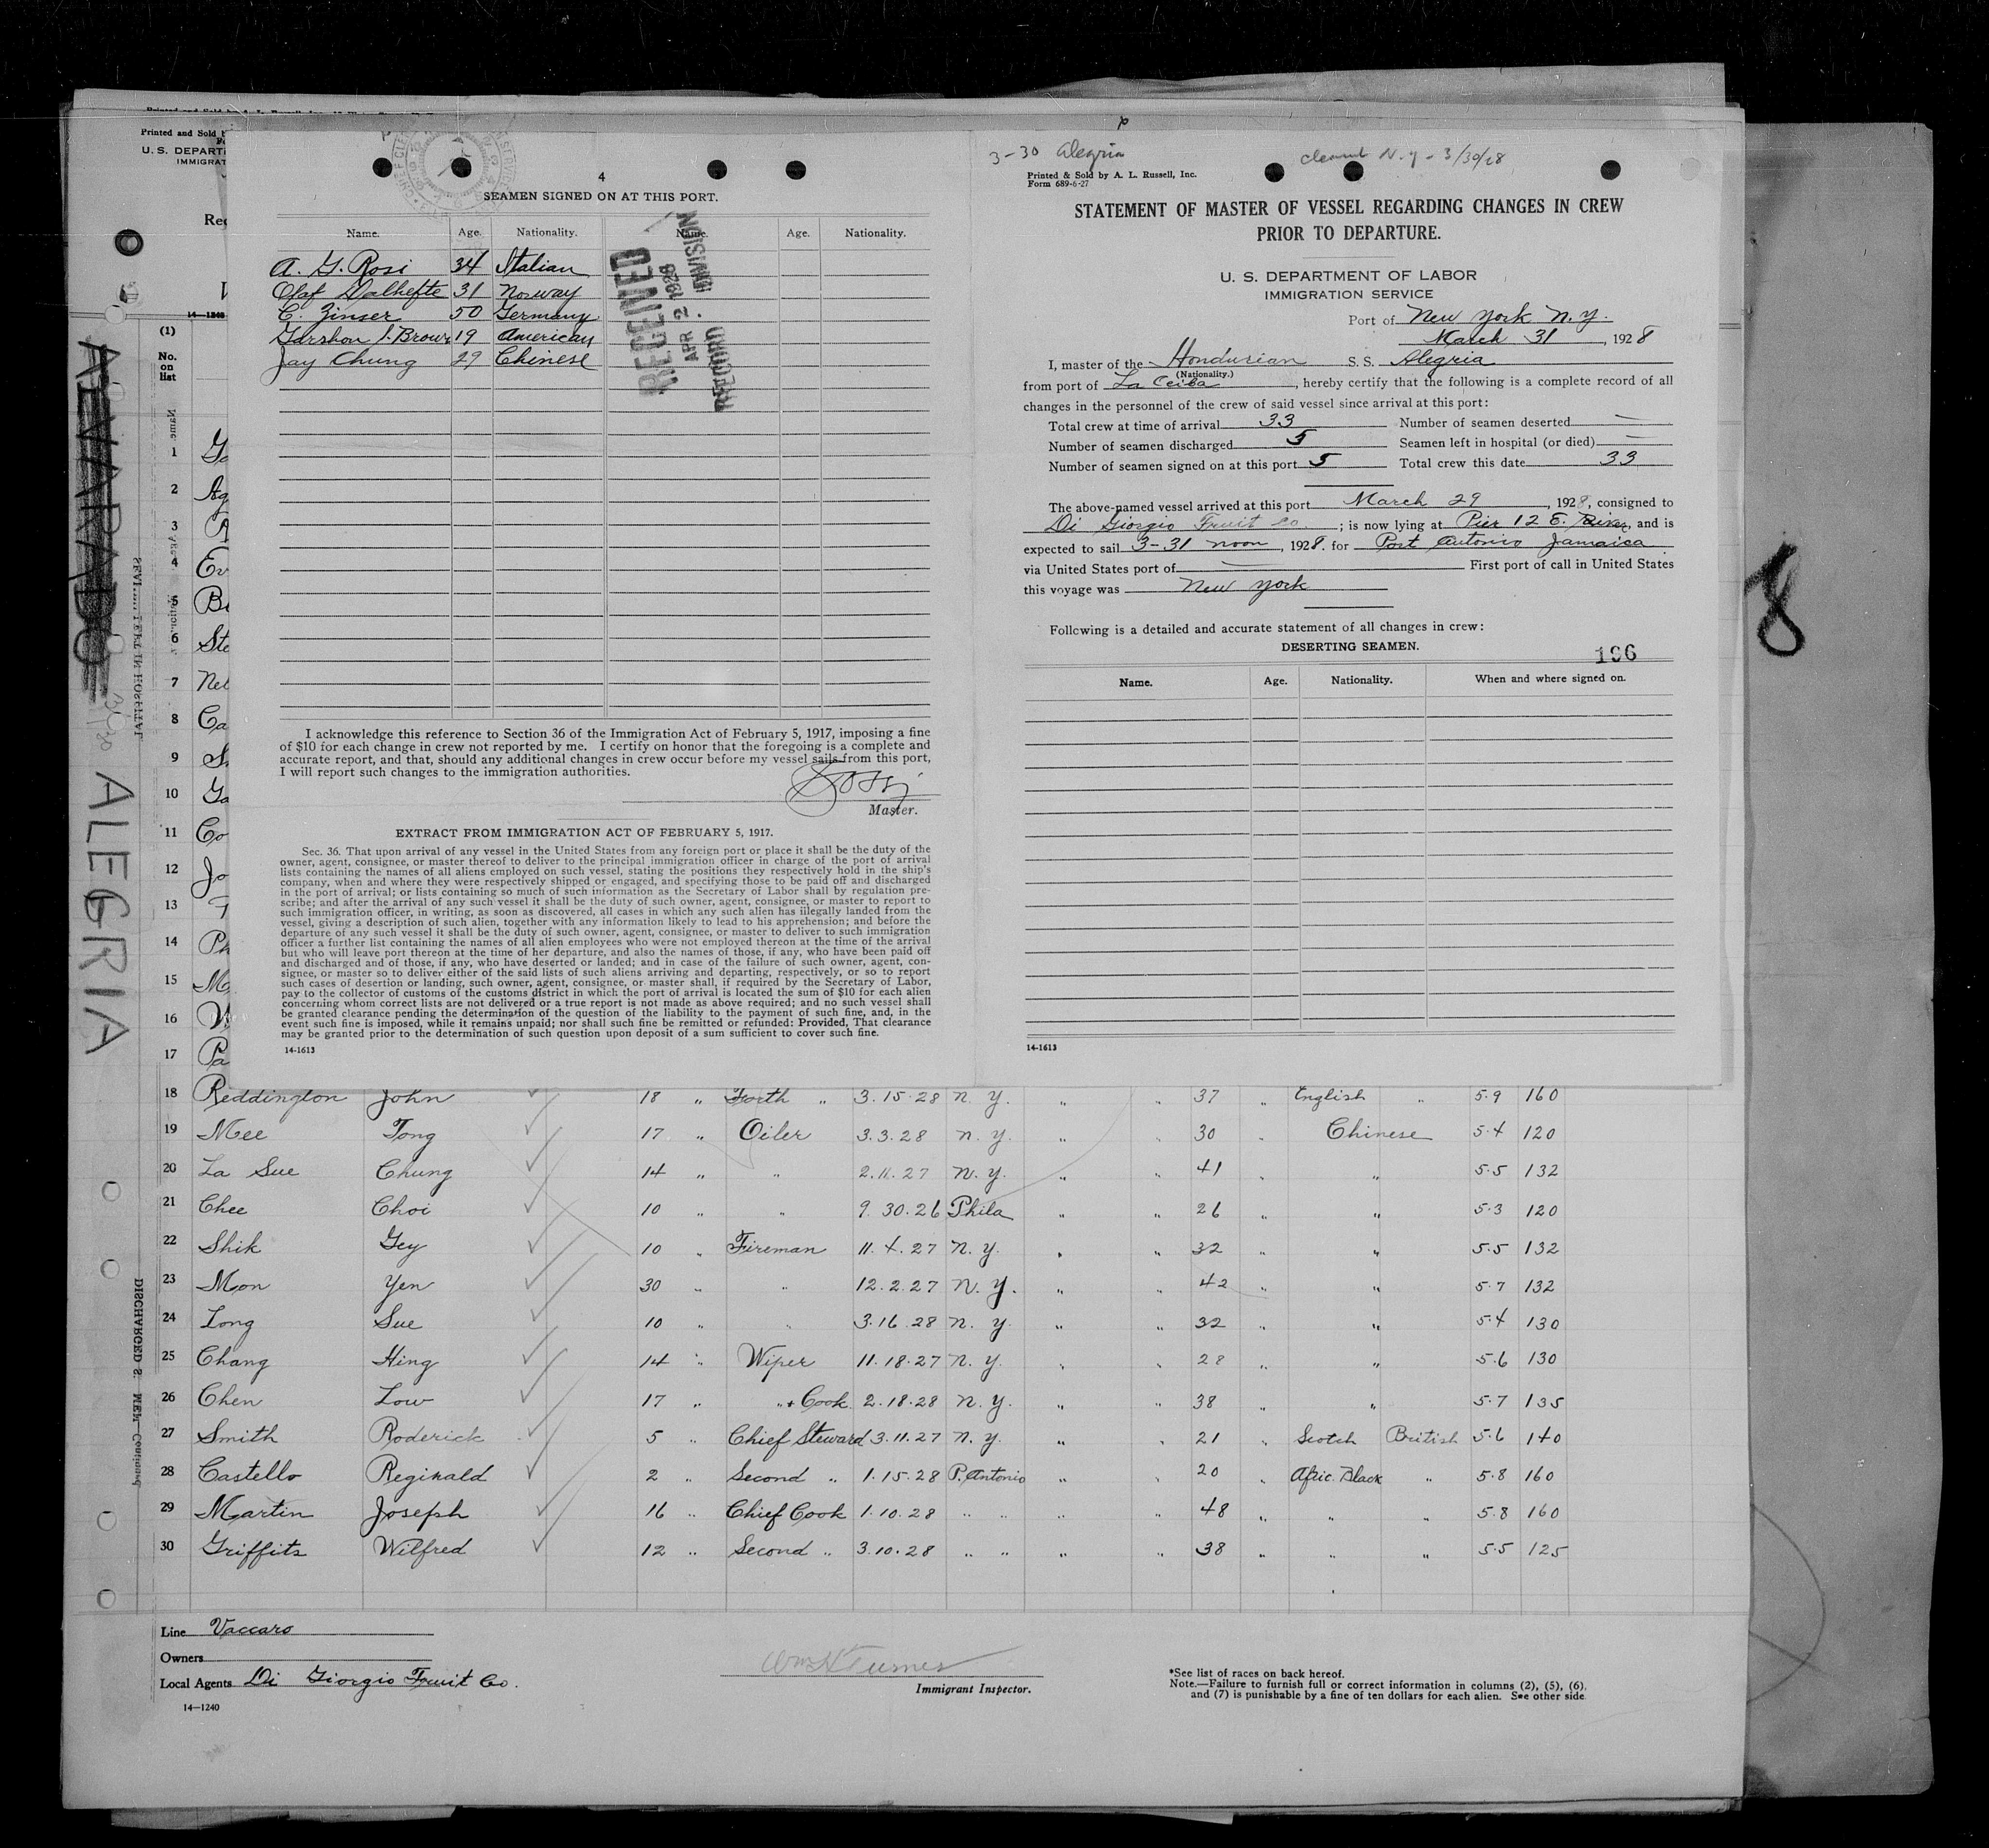 Printed and Sold
U. S. DEPART
IMMIGRAT
14—1240
(1)
No.
on
list
1 Go
2 Ag
3
4 Ev
5 Be
6 Ste
7 Nel
8 Ca
9 S
10 Ga
11 Co
12 Jo
13
14 Ph
15 M
16 W
17 Pa
ALVARADO
ALEGRIA
4
SEAMEN SIGNED ON AT THIS PORT.
Name. Age. Nationality. Name. Age. Nationality.
A. G. Rosi 34 Italian
Olaf Dalhefte 31 Norway
C. Zinser 50 Germany
Gershon I. Brown 19 American
Jay Chung 29 Chinese
RECEIVED
APR 2 1928
RECORD DIVISION
I acknowledge this reference to Section 36 of the Immigration Act of February 5, 1917, imposing a fine
of $10 for each change in crew not reported by me. I certify on honor that the foregoing is a complete and
accurate report, and that, should any additional changes in crew occur before my vessel sails from this port,
I will report such changes to the immigration authorities.
Master.
EXTRACT FROM IMMIGRATION ACT OF FEBRUARY 5, 1917.
Sec. 36. That upon arrival of any vessel in the United States from any foreign port or place it shall be the duty of the
owner, agent, consignee, or master thereof to deliver to the principal immigration officer in charge of the port of arrival
lists containing the names of all aliens employed on such vessel, stating the positions they respectively hold in the ship's
company, when and where they were respectively shipped or engaged, and specifying those to be paid off and discharged
in the port of arrival; or lists containing so much of such information as the Secretary of Labor shall by regulation pre-
scribe; and after the arrival of any such vessel it shall be the duty of such owner, agent, consignee, or master to report to
such immigration officer, in writing, as soon as discovered, all cases in which any such alien has illegally landed from the
vessel, giving a description of such alien, together with any information likely to lead to his apprehension; and before the
departure of any such vessel it shall be the duty of such owner, agent, consignee, or master to deliver to such immigration
officer a further list containing the names of all alien employees who were not employed thereon at the time of the arrival
but who will leave port thereon at the time of her departure, and also the names of those, if any, who have been paid off
and discharged and of those, if any, who have deserted or landed; and in case of the failure of such owner, agent, con-
signee, or master so to deliver either of the said lists of such aliens arriving and departing, respectively, or so to report
such cases of desertion or landing, such owner, agent, consignee, or master shall, if required by the Secretary of Labor,
pay to the collector of customs of the customs district in which the port of arrival is located the sum of $10 for each alien
concerning whom correct lists are not delivered or a true report is not made as above required; and no such vessel shall
be granted clearance pending the determination of the question of the liability to the payment of such fine, and, in the
event such fine is imposed, while it remains unpaid; nor shall such fine be remitted or refunded: Provided, That clearance
may be granted prior to the determination of such question upon deposit of a sum sufficient to cover such fine.
14-1613
3-30 Alegria
cleared N.Y - 3/30/28
Printed & Sold by A. L. Russell, Inc.
Form 689-6-27
STATEMENT OF MASTER OF VESSEL REGARDING CHANGES IN CREW
PRIOR TO DEPARTURE.
U. S. DEPARTMENT OF LABOR
IMMIGRATION SERVICE
Port of New York N.Y.
March 31, 1928
I, master of the Hondurian S. S. Alegria
(Nationality.)
from port of La Ceiba, hereby certify that the following is a complete record of all
changes in the personnel of the crew of said vessel since arrival at this port:
Total crew at time of arrival 33 Number of seamen deserted —
Number of seamen discharged 5 Seamen left in hospital (or died) —
Number of seamen signed on at this port 5 Total crew this date 33
The above-named vessel arrived at this port March 29, 1928, consigned to
Di Giorgio Fruit Co.; is now lying at Pier 12 E. River, and is
expected to sail 3-31 noon, 1928. for Port Antonio Jamaica
via United States port of — First port of call in United States
this voyage was New York
Following is a detailed and accurate statement of all changes in crew:
DESERTING SEAMEN.
196
Name. Age. Nationality. When and where signed on.
14-1613
8
18 Reddington John 18 " Forth " 3.15.28 N.Y. " " 37 " English " 5.9 160
19 Mee Tong 17 " Oiler 3.3.28 N.Y. " " 30 " Chinese 5.4 120
20 La Sue Chung 14 " " 2.11.27 N.Y. " " 41 " " 5.5 132
21 Chee Choi 10 " " 9.30.26 Phila " " 26 " " 5.3 120
22 Shik Gey 10 " Fireman 11.4.27 N.Y. " " 32 " " 5.5 132
23 Mon Yen 30 " " 12.2.27 N.Y. " " 42 " " 5.7 132
24 Long Sue 10 " " 3.16.28 N.Y. " " 32 " " 5.4 130
25 Chang Hing 14 " Wiper 11.18.27 N.Y. " " 28 " " 5.6 130
26 Chen Low 17 " " + Cook 2.18.28 N.Y. " " 38 " " 5.7 135
27 Smith Roderick 5 " Chief Steward 3.11.27 N.Y. " " 21 " Scotch British 5.6 140
28 Castello Reginald 2 " Second " 1.15.28 P. Antonio " " 20 " Afric. Black " 5.8 160
29 Martin Joseph 16 " Chief Cook 1.10.28 " " " " 48 " " " 5.8 160
30 Griffits Wilfred 12 " Second " 3.10.28 " " " " 38 " " " 5.5 125
Line Vaccaro
Owners
Local Agents Di Giorgio Fruit Co.
14—1240
Wm H Turner
Immigrant Inspector.
*See list of races on back hereof.
Note.—Failure to furnish full or correct information in columns (2), (5), (6),
and (7) is punishable by a fine of ten dollars for each alien. See other side